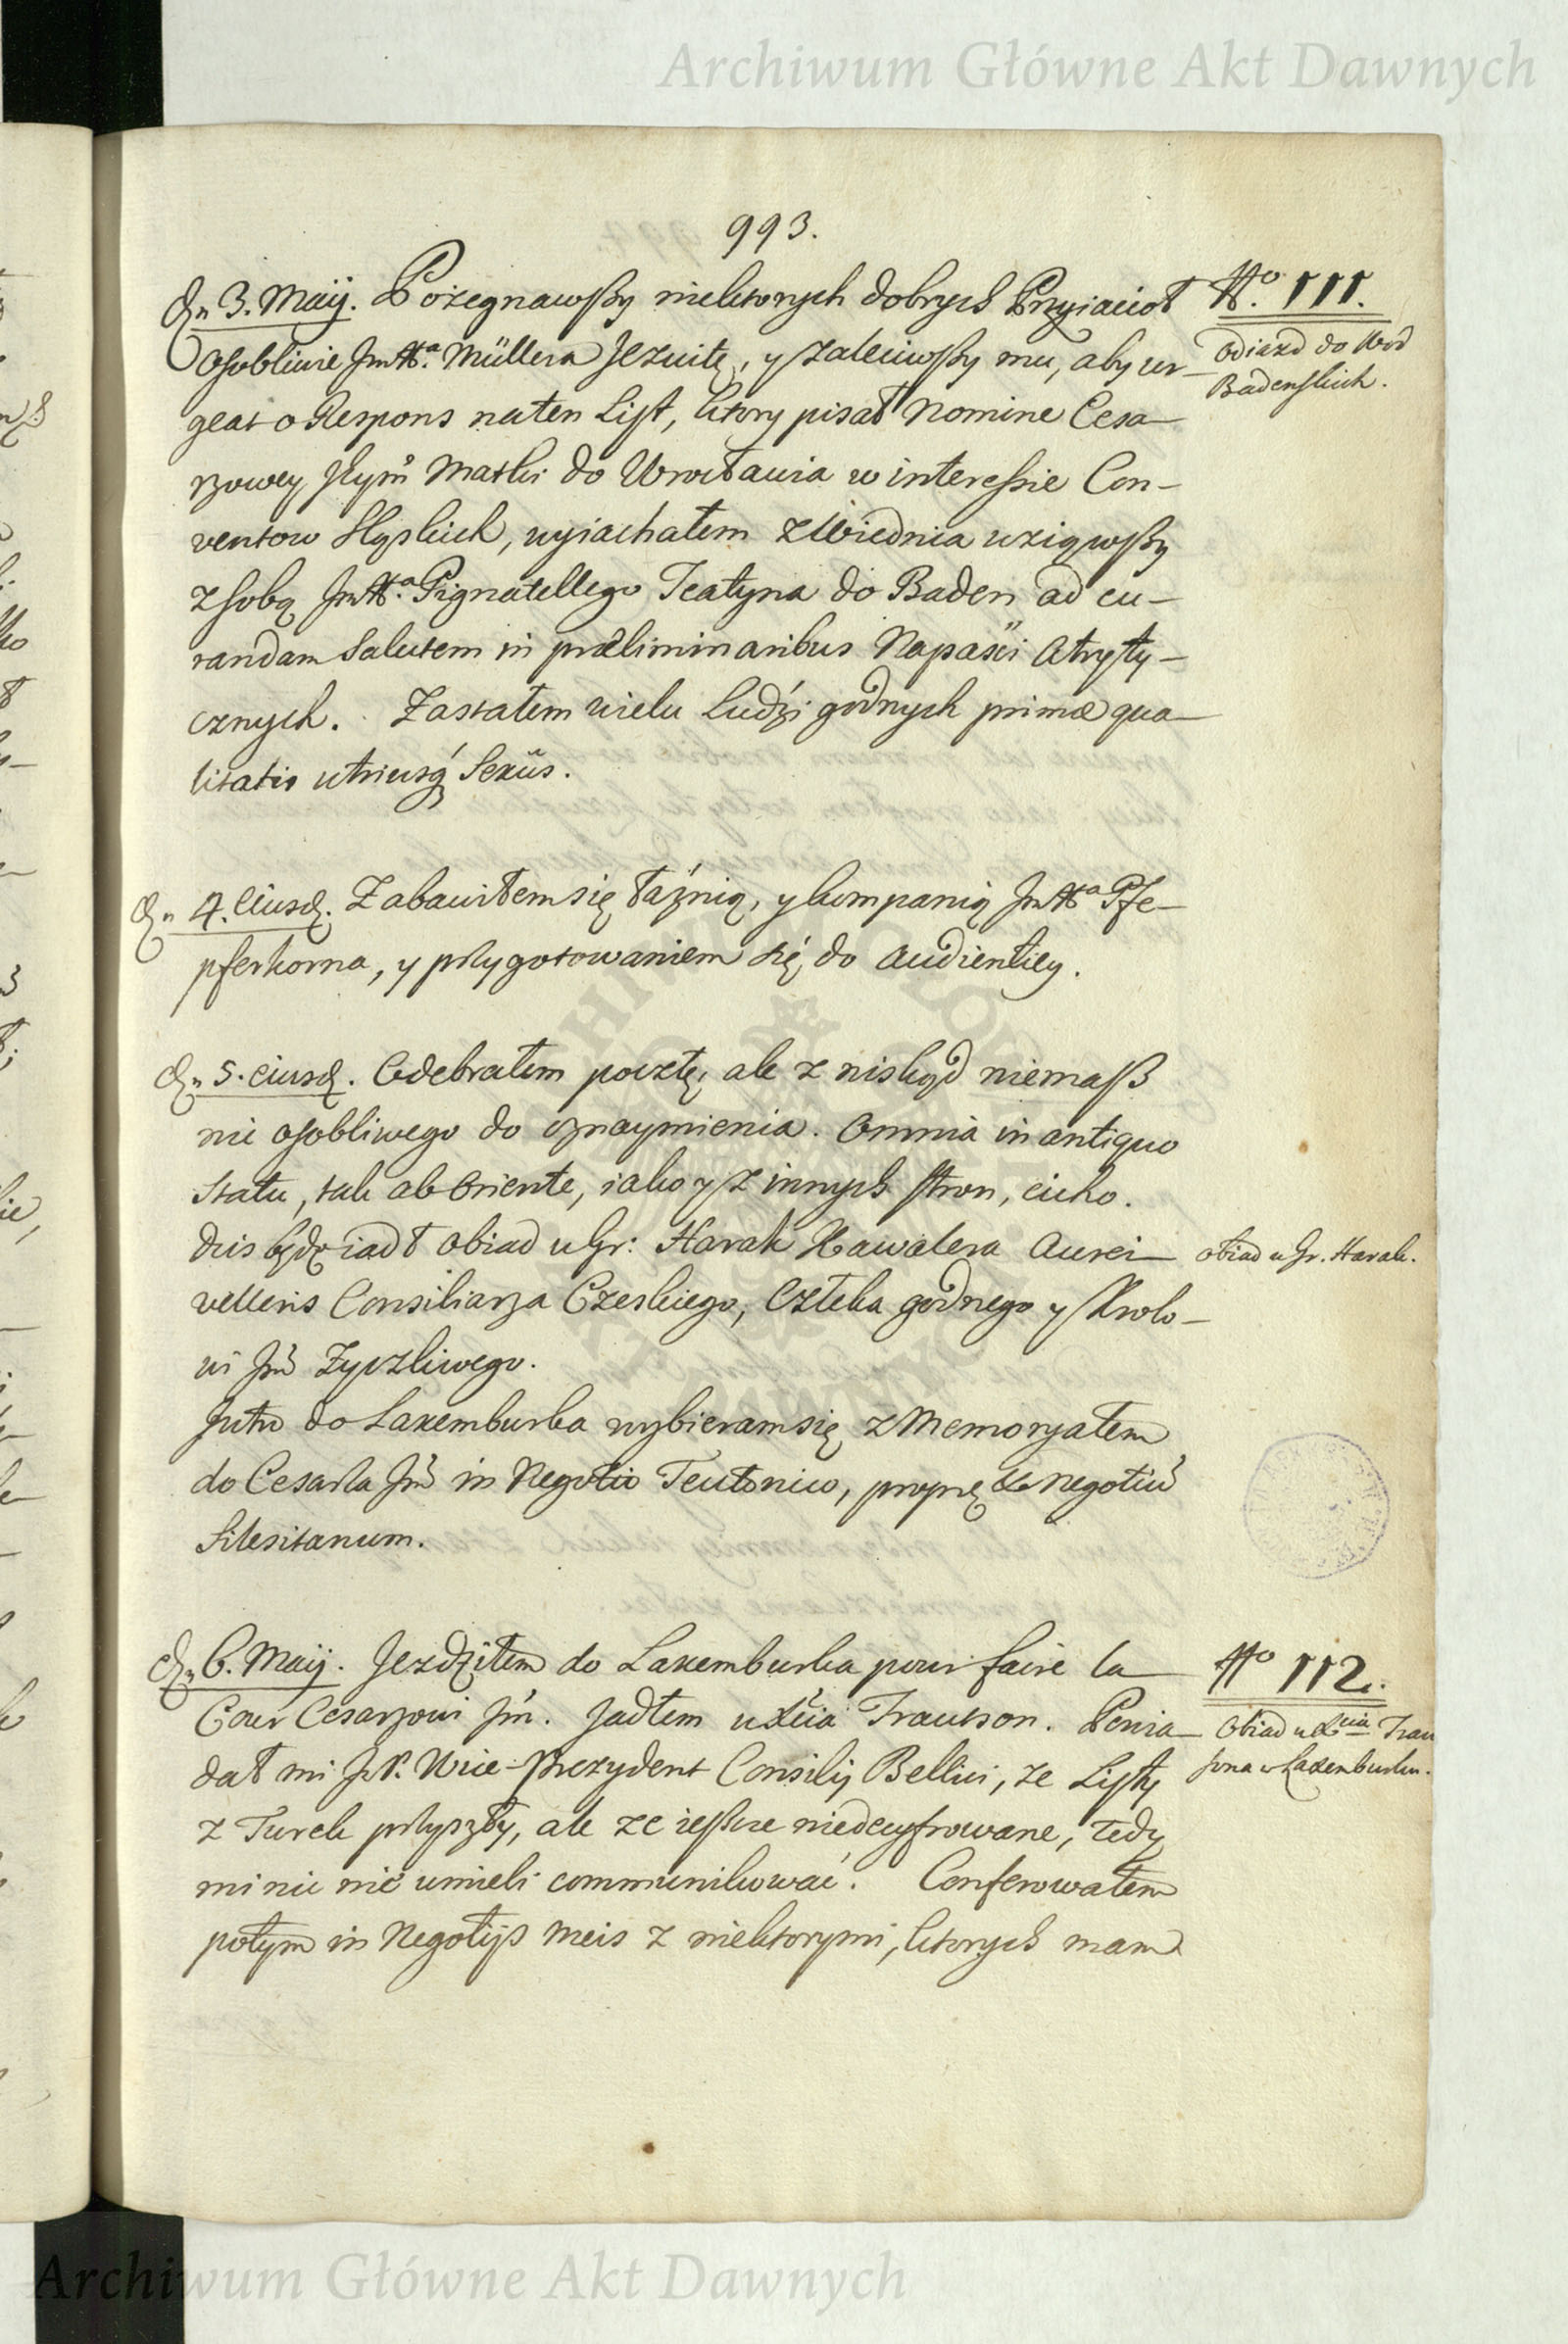 Archiwum Główne Akt Dawnych
993.
Dn 3. Maij. Pożegnawszy niektorych dobrych Przyiacioł
osobliwie JmXa. Müllera Jezuitę, y zaleciwszy mu, aby ur-
geat o Respons na ten List, ktory pisał Nomine Cesa-
rzowey Jeym Matki do Wrocławia w interessie Con-
ventow Sląskich, wyiachałem z Wiednia wziąwszy
z sobą JmXa. Pignatellego Teatyna do Baden ad cu-
randam Salutem in præliminaribus Napaści Atryty-
cznych. Zastałem wielu Ludźi godnych primæ qua-
litatis utriusq Sexûs.
No. 111.
Odiazd do Wod
Badenskich.
Dn 4. Eiusd. Zabawiłem się łaźnią, y kompanią JmXa Pfe-
pferkorna, y przygotowaniem się do Audientiey.
Dn 5. Eiusd. Odebrałem pocztę, ale z niskąd niemasz
nic osobliwego do oznaymienia. Omnia in antiquo
Statu, tak ab Oriente, iako y z innych stron, cicho.
Dzis będę iadł obiad u Gr: Harak Kawalera Aurei
velleris Consiliarza Czeskiego, Człeka godnego y Krolo-
wi Jm Zyczliwego.
obiad u Gr. Harak.
Jutro do Laxemburka wybieram się z Memoryałem
do Cesarza Jm in Negotio Teutonico, propter & negotiu
Silesitanum.
Dn 6. Maij. Jezdziłem do Laxemburka pour faire la
Cour Cesarzowi Jm. Jadłem u Xcia Trautson. Powia-
dał mi JP. Wice-Prezydent Consilij Bellici, ze Listy
z Turek przyszły, ale ze ieszcze niedecyfrowane, tedy
mi nic nie umieli communikować. Conferowałem
potym in Negotijs meis z niektorymi, ktorych mam
No 112.
Obiad u Xcia Trau
sona w Laxenburku.
Archiwum Główne Akt Dawnych